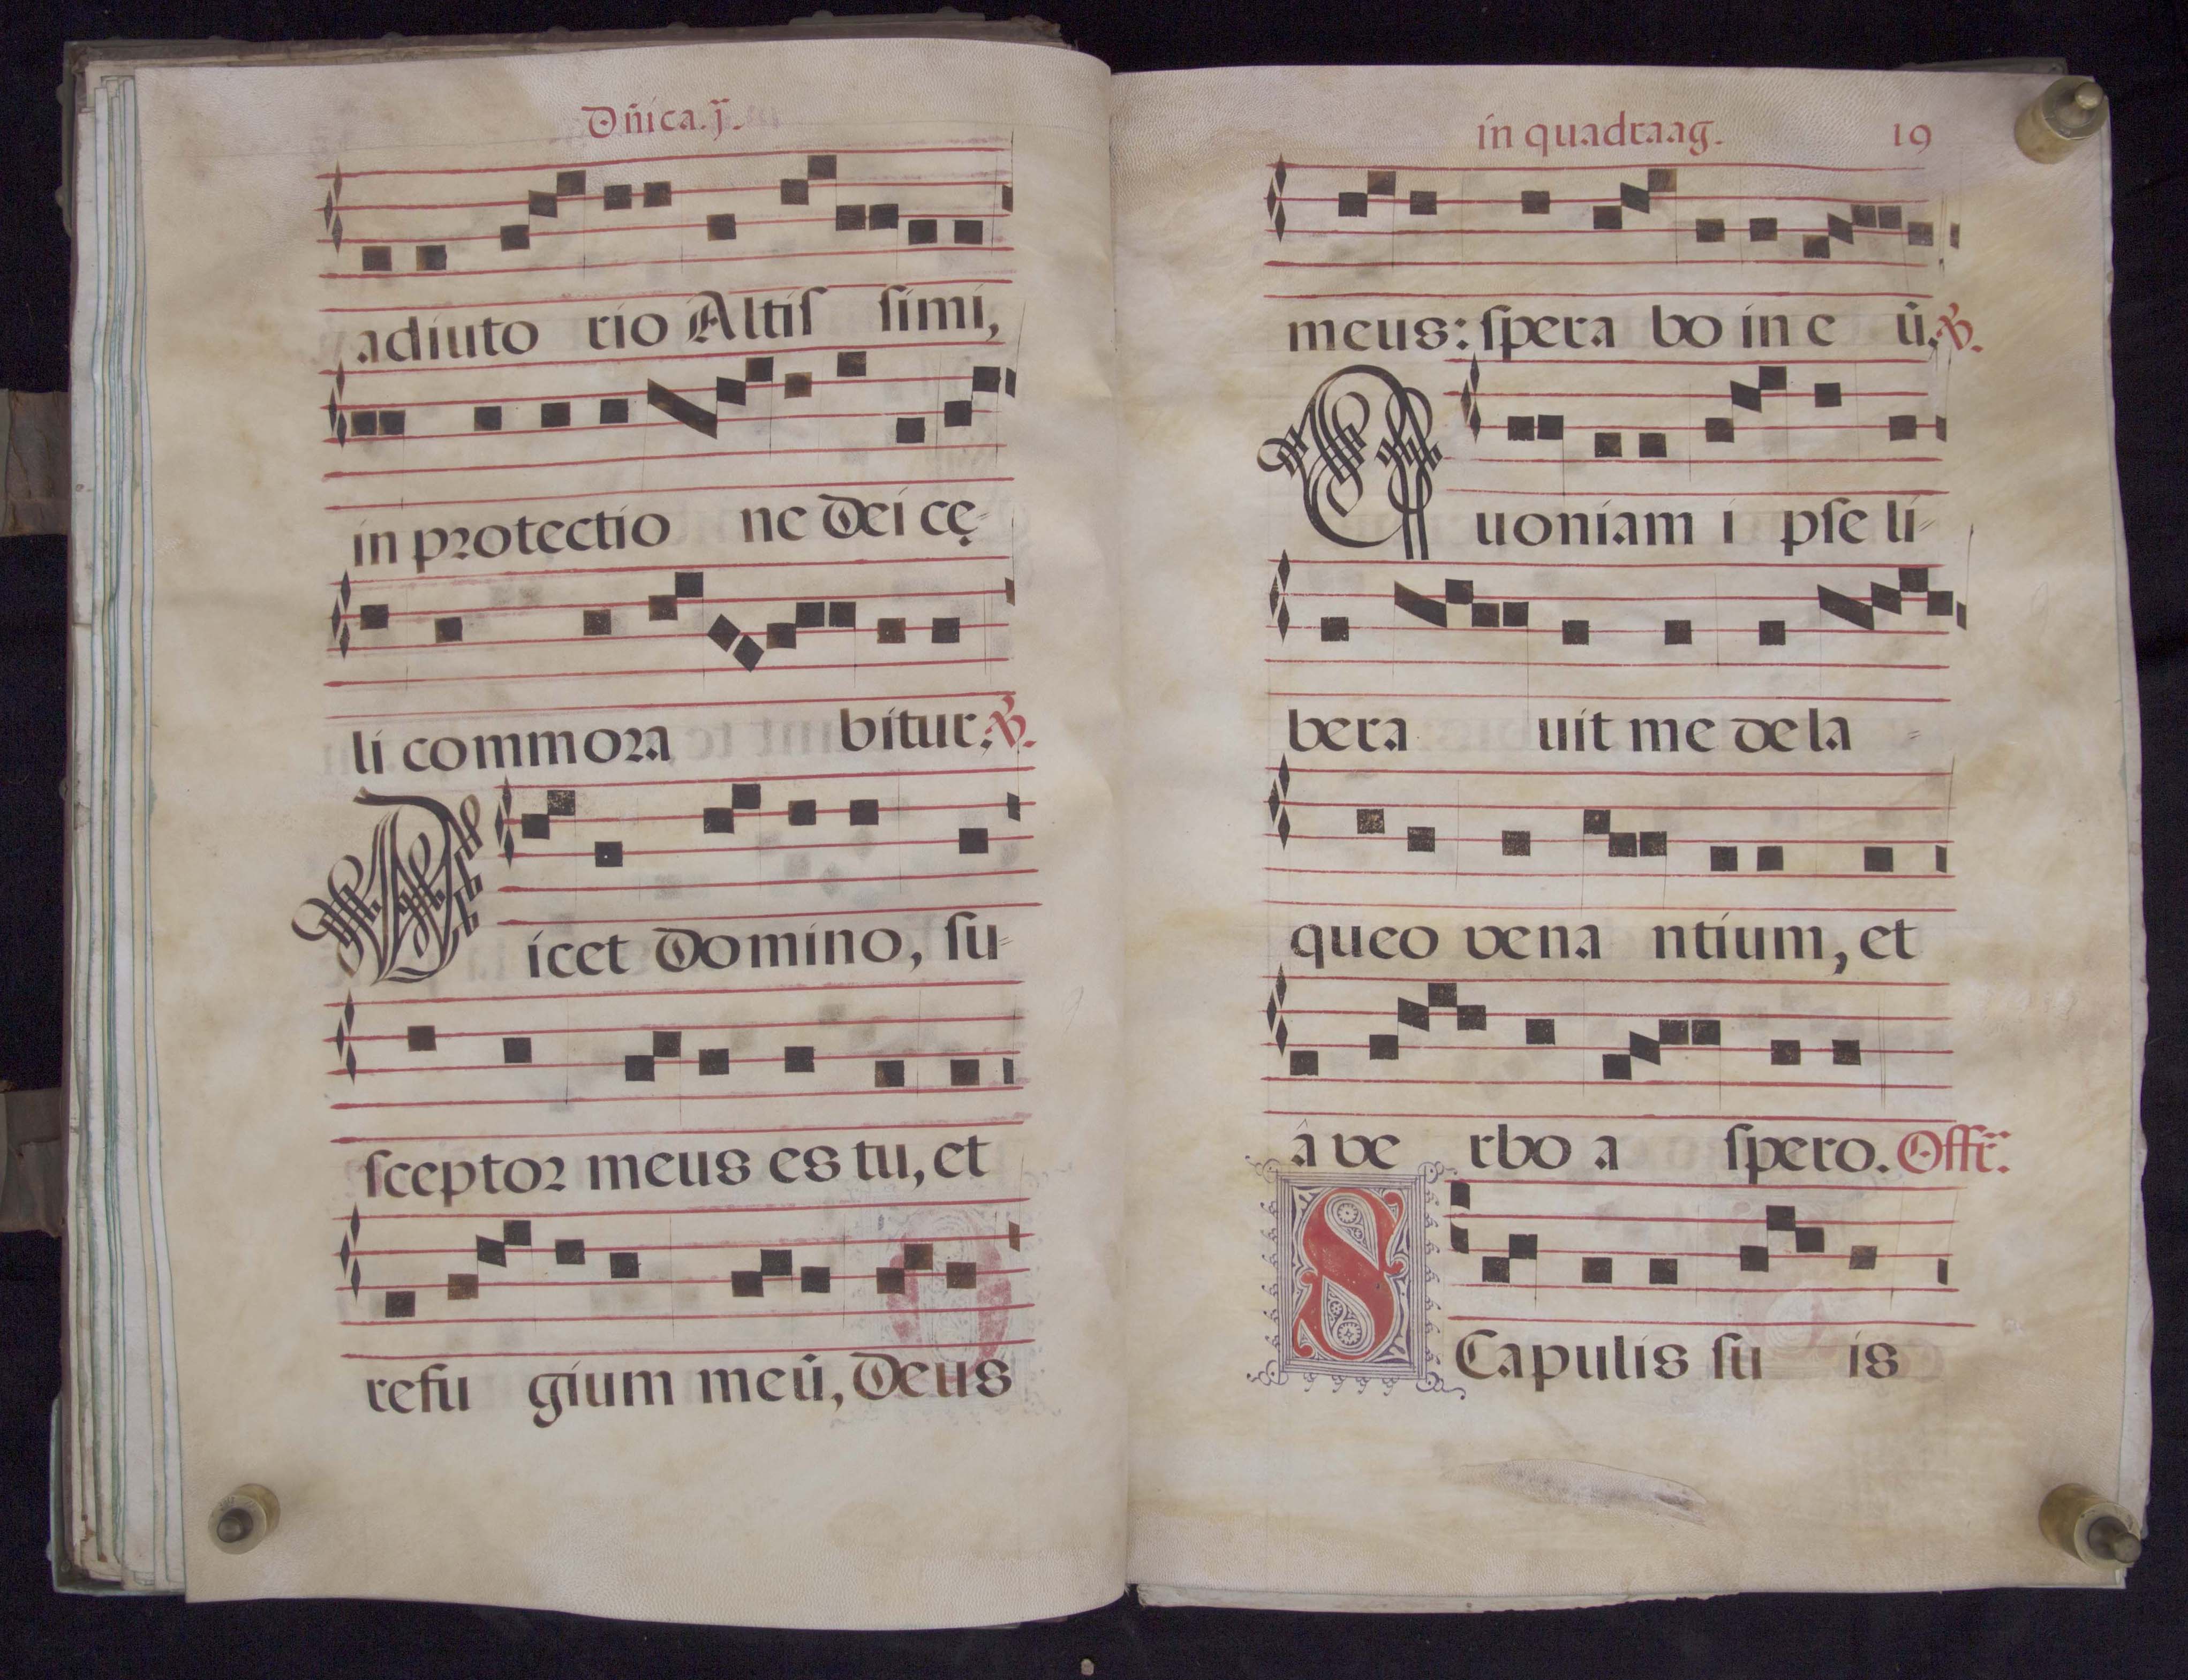 Dñica. j.
adiuto rio Altiſ ſimi,
in protectio ne Dei cę-
li commora bitur. ℣.
Dicet Domino, ſu-
ſceptor meus es tu, et
refu gium meū, Deus
in quadraag. 19
meus: ſpera bo in e ū. ℣.
Quoniam i pſe li-
bera uit me de la-
queo vena ntium, et
â ve rbo a ſpero. Offr̃.
SCapulis ſu is